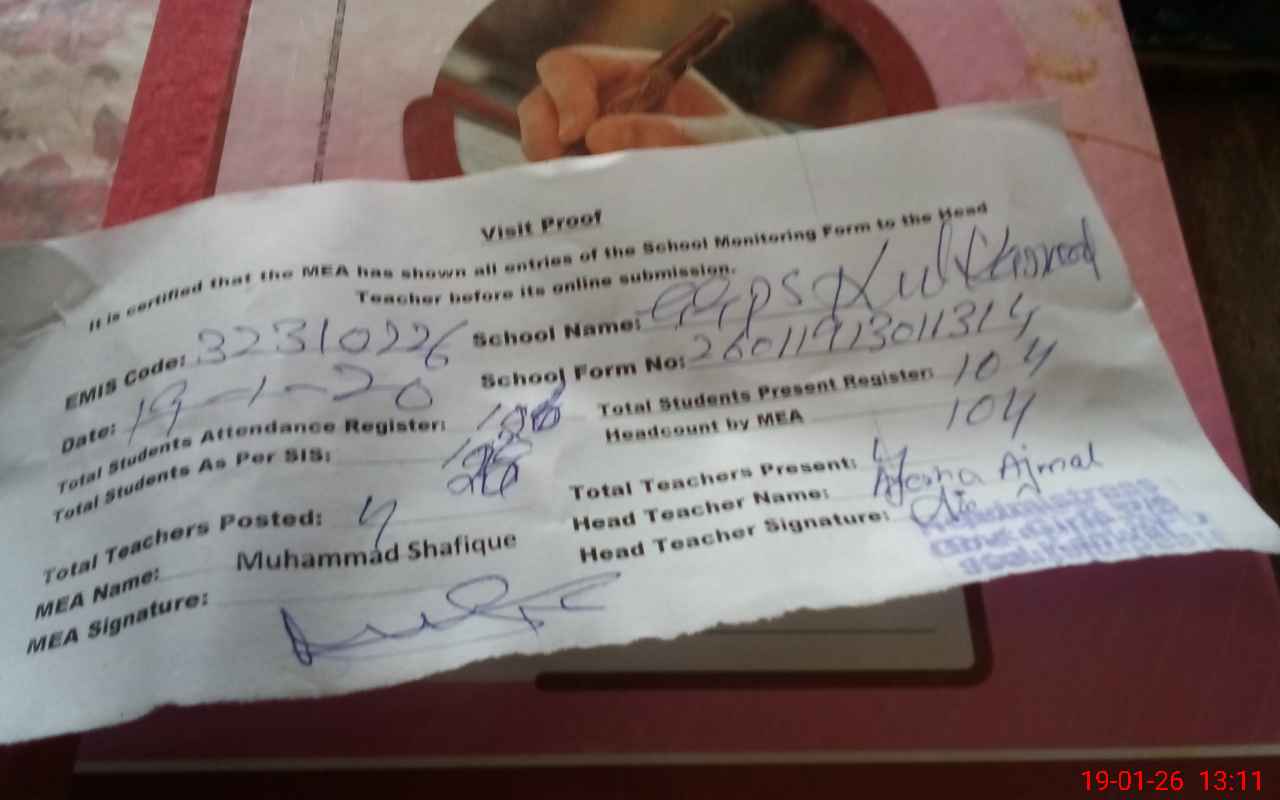 Visit Proof
It is certified that the MEA has shown all entries of the School Monitoring Form to the Head
Teacher before its online submission.
EMIS Code: 32310226 School Name: GGPS
Date: 19-1-20 School Form No: 26011913011314
Total Students Attendance Register: Total Students Present Register: 104
Total Students As Per SIS: Headcount by MEA 104
Total Teachers Posted: 4 Total Teachers Present: 4
MEA Name: Muhammad Shafique Head Teacher Name: Ayesha Ajmal
MEA Signature: Head Teacher Signature:
19-01-26 13:11